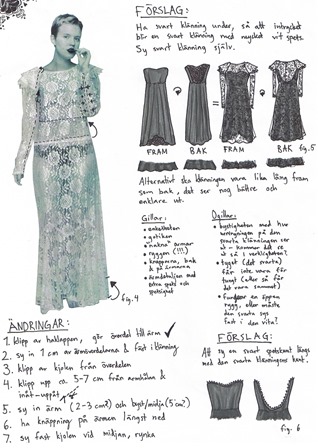 FÖRSLAG:
Ha svart klänning under, så att intrycket
blir en svart klänning med mycket vit spets.
Sy svart klänning själv.
FRAM
BAK
FRAM
BAK
fig.5
Alternativt ska klänningen vara lika lång fram
som bak, det ser nog bättre och
enklare ut.
Gillar:
• enkelheten
• gotiken
• nakna armar
• ryggen (!!!)
• knapparna, bak
& på ärmarna
• ärmdetaljen med
extra spets och
spetsighet
Ogillar:
• bystigheten med hur
urringningen på den
svarta klänningen ser
ut - kommer det se
ut så i verkligheten?
• tyget (det svarta)
får inte vara för
tungt (eller så får
det vara samma)
• Funderar en öppen
rygg, eller måste
den svarta sys
fast i den vita?
fig.4
ÄNDRINGAR:
1. klipp av halloppen, gör överdel till ärm ✓
2. sy in 1 cm av ärmöverdelarna & fäst i klänning
3. klipp av kjolen från överdelen
4. klipp upp ca. 5-7 cm från ärmhålen &
inåt-uppåt
5. sy in ärm (2-3 cm?) och byst/midja (5 cm?)
6. ha knäppning på ärmen längst ned
7. sy fast kjolen vid midjan, rynka
FÖRSLAG:
Att sy en svart spetskant längs
med den svarta klänningens kant.
fig. 6